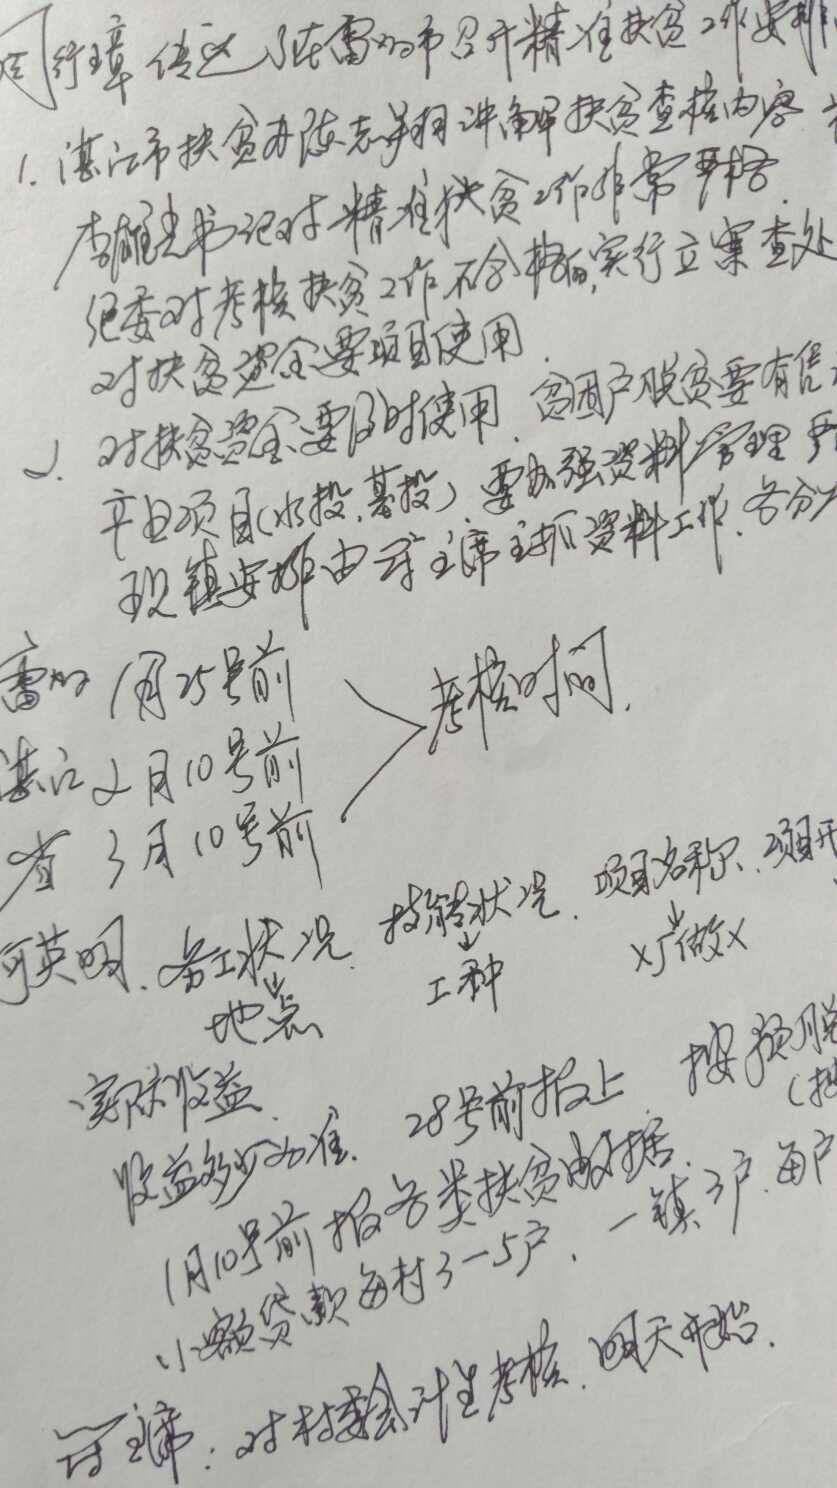 行璋传达在雷州市召开精准扶贫工作安排
1. 湛江市扶贫办陈志翔讲解扶贫查核内容
李雄光书记对精准扶贫工作非常严格.
纪委对考核扶贫工作不合格的,实行立案查处
对扶贫资金要项目使用.
2. 对扶贫资金要及时使用. 贫困户脱贫要有
项目(水投.基投). 要加强资料管理
现镇安排由主席主抓资料工作. 各分
雷州 1月25号前
湛江 2月10号前
考核时间.
省 3月10号前
何英明. 务工状况. 技能状况. 项目名称. 项目开
地点 工种 X厂做X
实际收益.
收益多少为准. 28号前报上 按预脱
1月10号前报各类扶贫数据.
小额贷款每村3-5户. 一镇3户. 每户
主席: 对村委会计生考核. 明天开始.